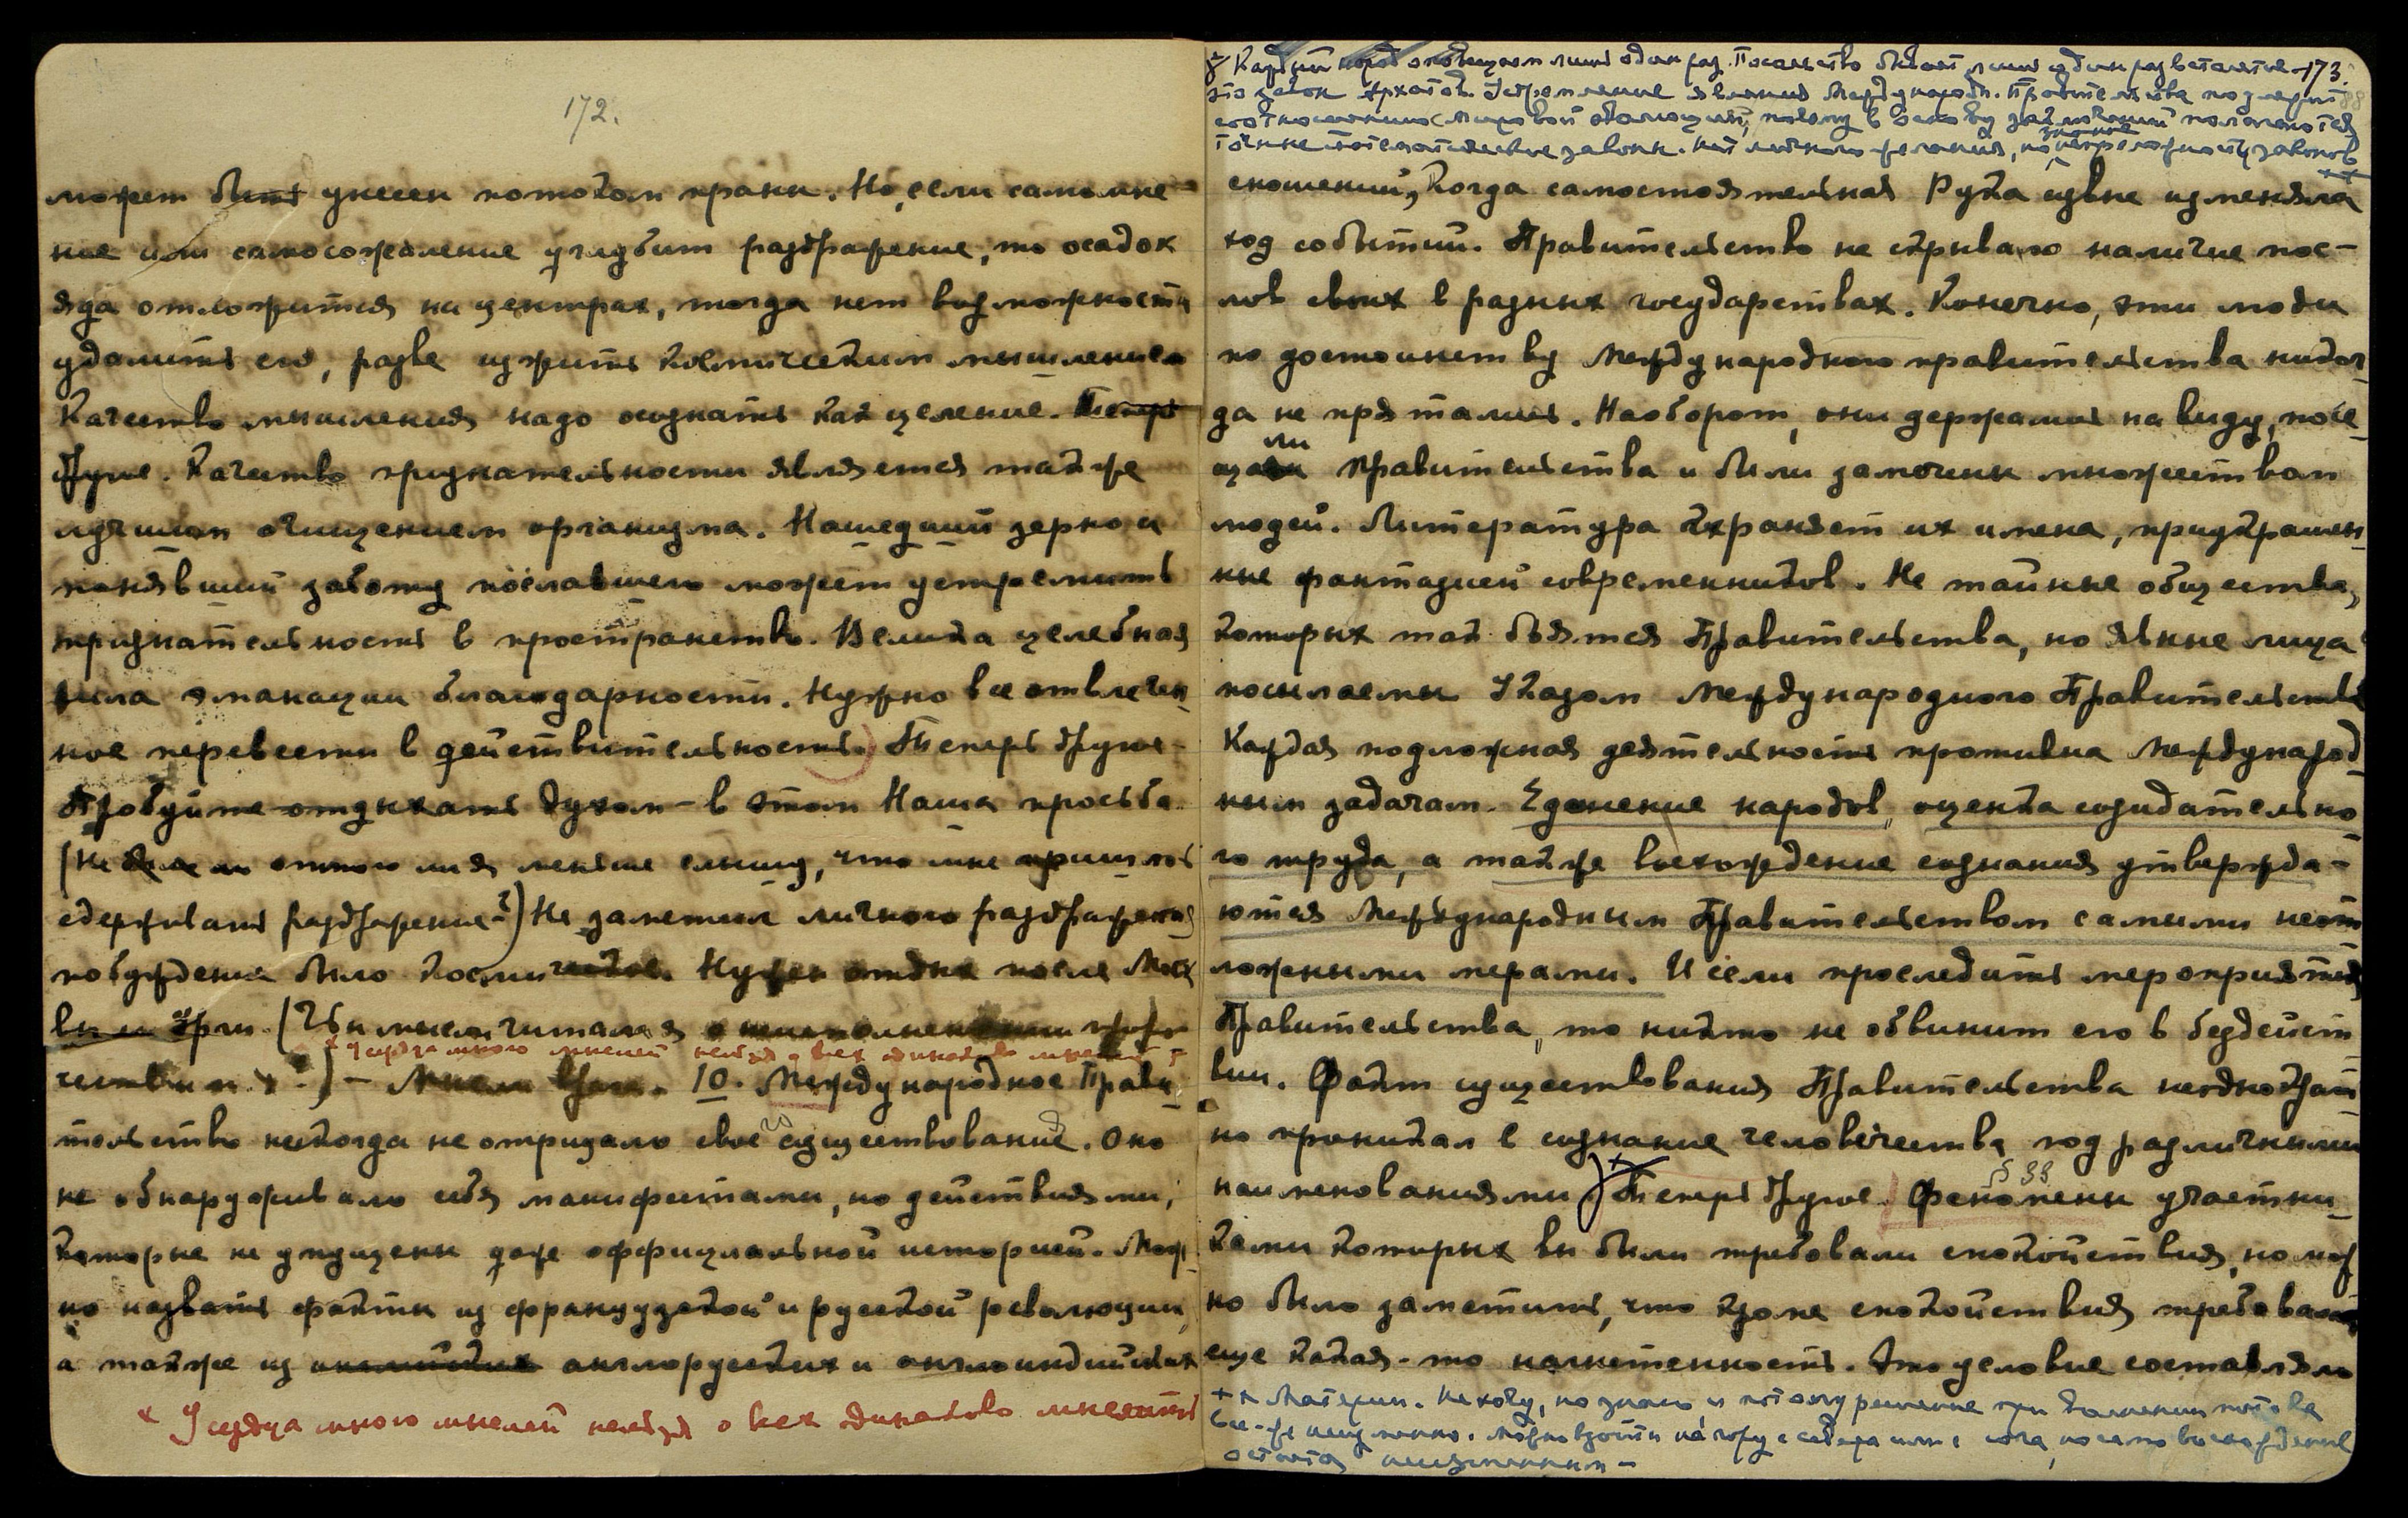 172.
может быть унесен потоком праны. Но, если самомне-
ние или самосожаление углубит раздражение, то осадок
яда отложится на центрах, тогда нет возможности
удалить его, разве изжить космическим мышлением
Качество мышления надо осознать как целение. Теперь
Друже. Качество признательности является также
лучшим очищением организма. Нашедший зерно и
понявший заботу пославшего может устремить
признательность в пространство. Велика целебная
сила эманации благодарности. Нужно все отвлечен-
ное перевести в действительность. Теперь друже-
Пробуйте отдыхать духом - в этом Наша просьба.
(Не от того ли я меньше слышу, что мне пришлось
сдерживать раздражение?) Не заметил личного раздражения
побуждение было космическое. Нужен отдых после Моск
вы и Урги. (Чьи мысли читала я
* У сердца много мыслей нельзя о всех одинаково мыслить
чества и т. .) - Мысли Урги. 10. Международное Прави-
тельство никогда не отрицало своего существования. Оно
не обнаруживало себя манифестами, но действиями,
которые не упущены даже оффициальной историей. Мож-
но назвать факты из французской и русской революции,
а также из английских англорусских и англоиндийских
× У сердца много мыслей нельзя о всех одинаково мыслить
173.
× Каждый народ оповещаем лишь один раз. Посольство бывает лишь один раз в столетие -
это закон Архатов. Устремление явления Международн. Правительства подлежит
соотношению с мировой эволюцией, потому в основу заключений полагаются
точные математические законы. Нет личного желания, но знание непреложность законов
××
сношений, когда самостоятельная Рука извне изменяла
ход событий. Правительство не скрывало наличие пос-
лов своих в разных государствах. Конечно, эти люди
по достоинству международного правительства никог-
да не прятались. Наоборот, они держались на виду, посе-
ли
щали Правительства и были замечены множеством
людей. Литература сохраняет их имена, приукрашен-
ные фантазией современников. Не тайные общества,
которых так боятся Правительства, но явные лица
посылаемы Указом Международного Правительства
Каждая подложная деятельность противна международ-
ным задачам. Единение народов, оценка созидательно-
го труда, а также восхождение сознания утвержда-
ются Международным Правительством самыми неот-
ложными мерами. И если проследить мероприятия
Правительства, то никто не обвинит его в бездейст-
вии. Факт существования Правительства неоднократ-
но проникал в сознание человечества под различными
наименованиями. Теперь друже. Феномены участни-
ками которых вы были требовали спокойствия, но мож-
но было заметить, что кроме спокойствия требовалась
еще какая-то напитенность. Это условие составляло
×× Материи. Не хочу, но знаю, и потому решение при колыхании потока
все-же неуклонно. Можно взойти на гору с севера или с юга, но само восхождение
остается неизменным -